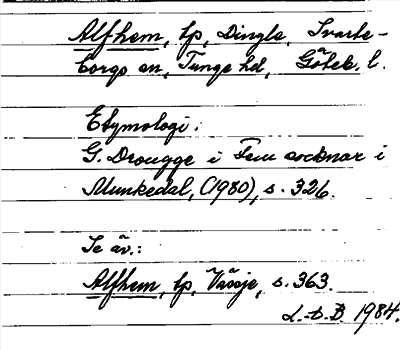 Alfhem, lp, Dingle, Svarte-
borgs sn, Tunge hd, Göteb. l.
Etymologi:
G. Drougge i Fem socknar i
Munkedal, (1980), s. 326.
Se äv.:
Alfhem, lp, Vässje, s. 363.
L.-A. B. 1984.